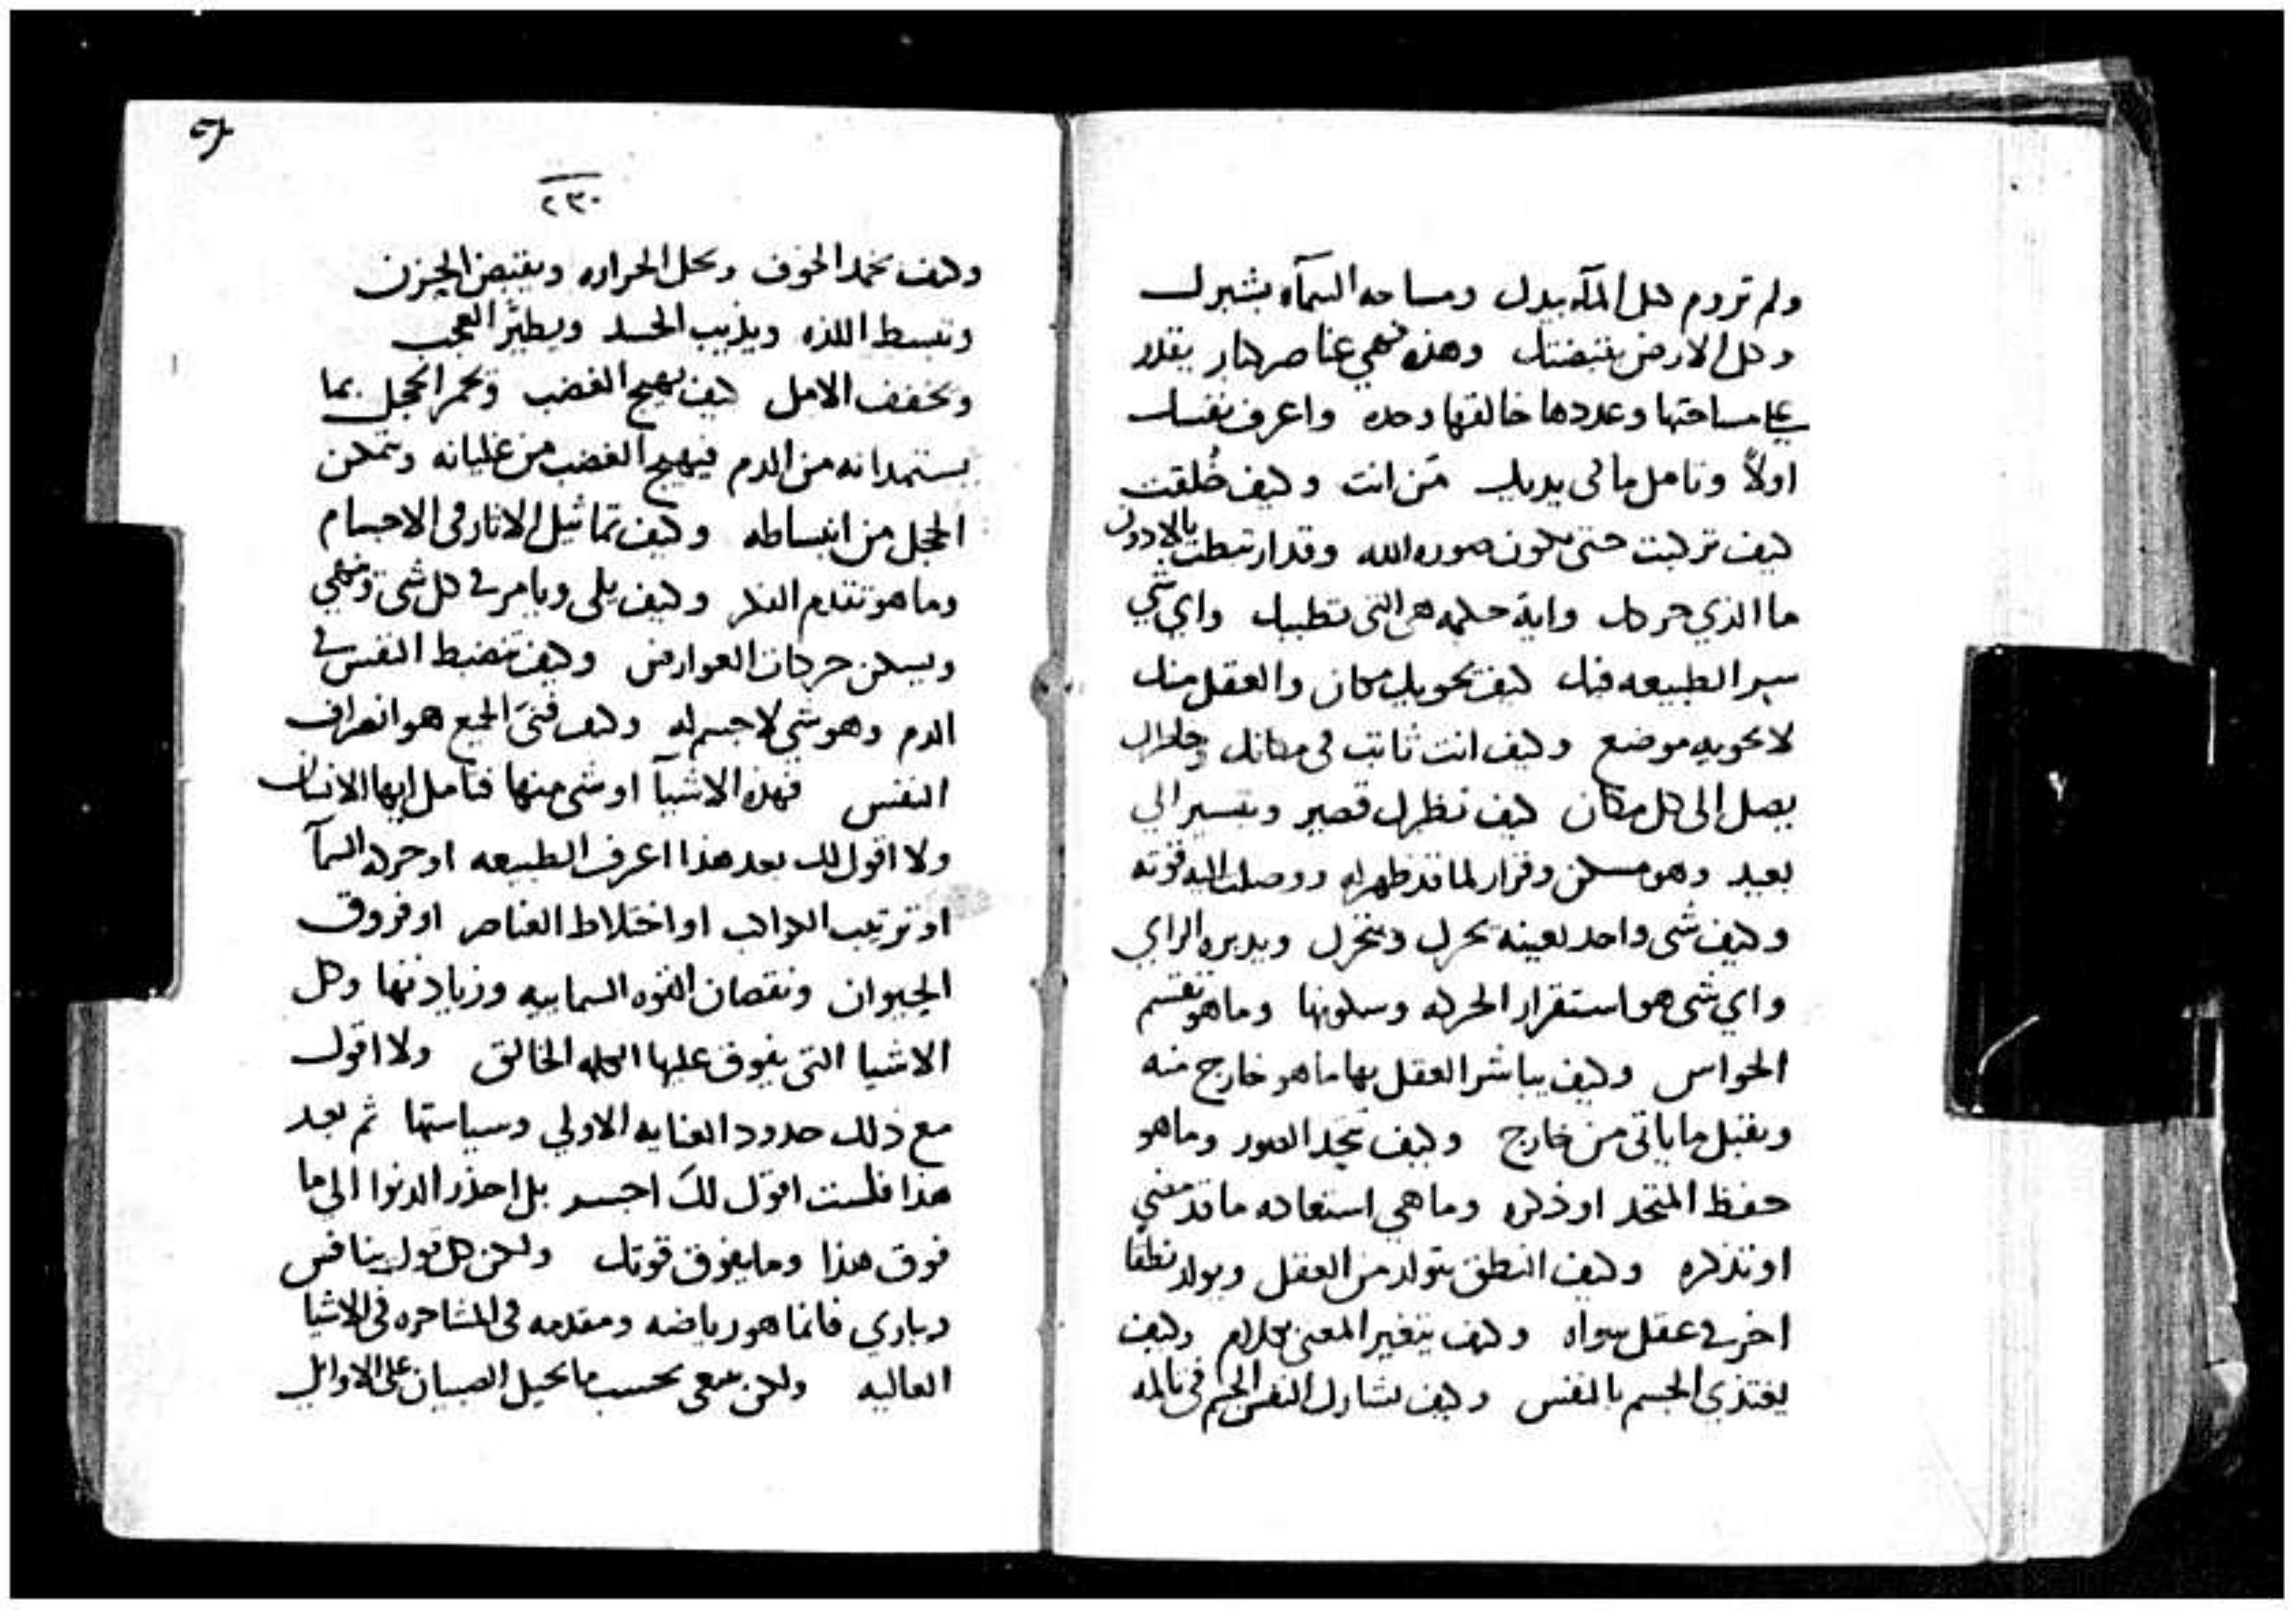 ولم تروم كيل المآء بيدك ومساحه السمآء بشبرك
وكل الارض بقبضتك وهذه فهي عناصر كبار يقدر
على مساحتها وعددها خالقها وحده واعرف نفسك
اولاً وتامل ما في يديك مَن انت وكيف خُلقت
كيف تركبت حتى تكون صوره الله وقد ارتبطت بالادون
ما الذي حركك واية حكمه هي التي تطيبك واي شي
سر الطبيعه فيك كيف يحويك مكان والعقل منك
لا يحويه موضع وكيف انت ثابت في مكانك
يصل الى كل مكان كيف نظرك قصير وتسير الي
بعيد وهو مسكن وقرار لما قد ظهر له ووصلت اليه قوته
وكيف شى واحد بعينه يحرك ويتحرك ويدبره الراي
واي شى هو استقرار الحركه وسكونها وما هو تقسم
الحواس وكيف يباشر العقل بها ما هو خارج منه
ويقبل ما ياتى من خارج وكيف تتحد الصور وما هو
حفظ المتحد او ذكره وما هي استعاده ما قد مضي
او تذكره وكيف النطق يتولد من العقل ويولد نطقًا
اخر في عقل سواه وكيف يتغير المعنى بكلام وكيف
يغتذي الجسم بالنفس وكيف تشارك النفس الجسم في تالمه
٢٣٠
وكيف يجمد الخوف ويحل الحراره ويقبض الحزن
وتبسط اللذه ويذيب الحسد ويطيّر العجب
ويخفف الامل كيف يهيج الغضب ويحمر الخجل بما
يستمدانه من الدم فيهيج الغضب من غليانه وتمكن
الخجل من انبساطه وكيف تماثيل الاثار في الاجسام
وما هو تقدم الفكر وكيف يلي ويامر في كل شى
ويسكن حركات العوارض وكيف تنضبط النفس في
الدم وهو شي لا جسم له وكيف فنىَ الجميع هو انصراف
النفس فهذه الاشيآ او شى منها فتامل ايها الانسان
ولا اقول لك بعد هذا اعرف الطبيعه او حركه السمآ
او ترتيب الكواكب او اختلاط العناصر او فروق
الحيوان ونقصان القوه السماييه وزيادتها وكل
الاشيا التى يفوق عليها الكلمه الخالق ولا اقول
مع ذلك حدود العنايه الاولي وسياستها ثم بعد
هذا فلست اقول لكَ اجسر بل احذر الدنوا الى ما
فوق هذا وما يفوق قوتك ولكن كل قول ينافس
ويباري فانما هو رياضه ومقدمه في المشاجره في الاشيا
العاليه ولكن بحسب ما يحيل الصبيان على الاوايل